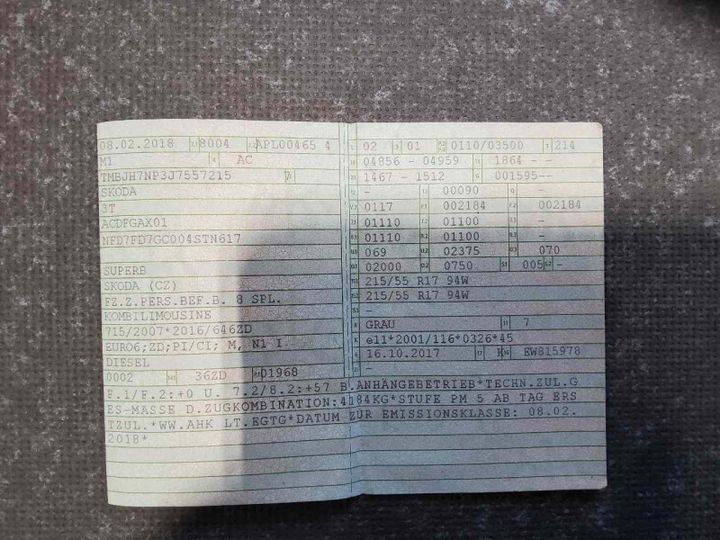 08.02.2018 8004 APL00465 4
M1 AC
TMBJH7NP3J7557215
SKODA
3T
ACDFGAX01
NFD7FD7GC004STN617
SUPERB
SKODA (CZ)
FZ.Z.PERS.BEF.B. 8 SPL.
KOMBILIMOUSINE
715/2007*2016/646ZD
EURO6;ZD;PI/CI; M, N1 I
DIESEL
0002 36ZD 01968
02 01 0110/03500 214
04856 - 04959 1864 - -
1467 - 1512 001595--
- 00090 -
0117 002184 002184
01110 01100 -
01110 01100 -
069 02375 070
02000 0750 005 -
215/55 R17 94W
215/55 R17 94W
-
GRAU 7
e11*2001/116*0326*45
16.10.2017 K EW815978
-
F.1/F.2:+0 U. 7.2/8.2:+57 B.ANHÄNGEBETRIEB*TECHN.ZUL.G
ES-MASSE D.ZUGKOMBINATION:4184KG*STUFE PM 5 AB TAG ERS
TZUL.*WW.AHK LT.EGTG*DATUM ZUR EMISSIONSKLASSE: 08.02.
2018*